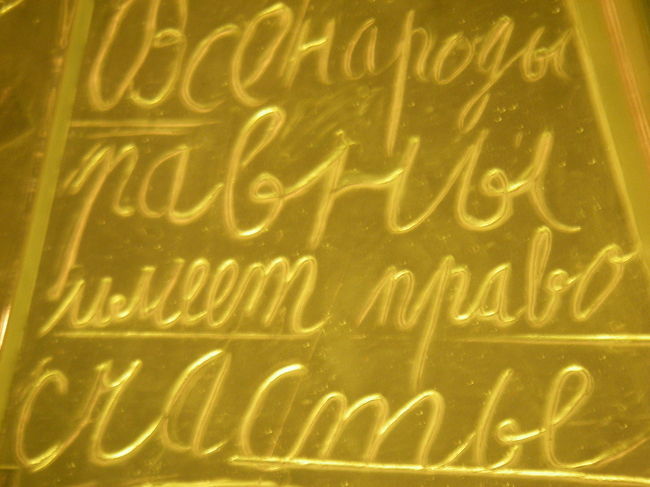 Все народы
равны
имеет право
счастье